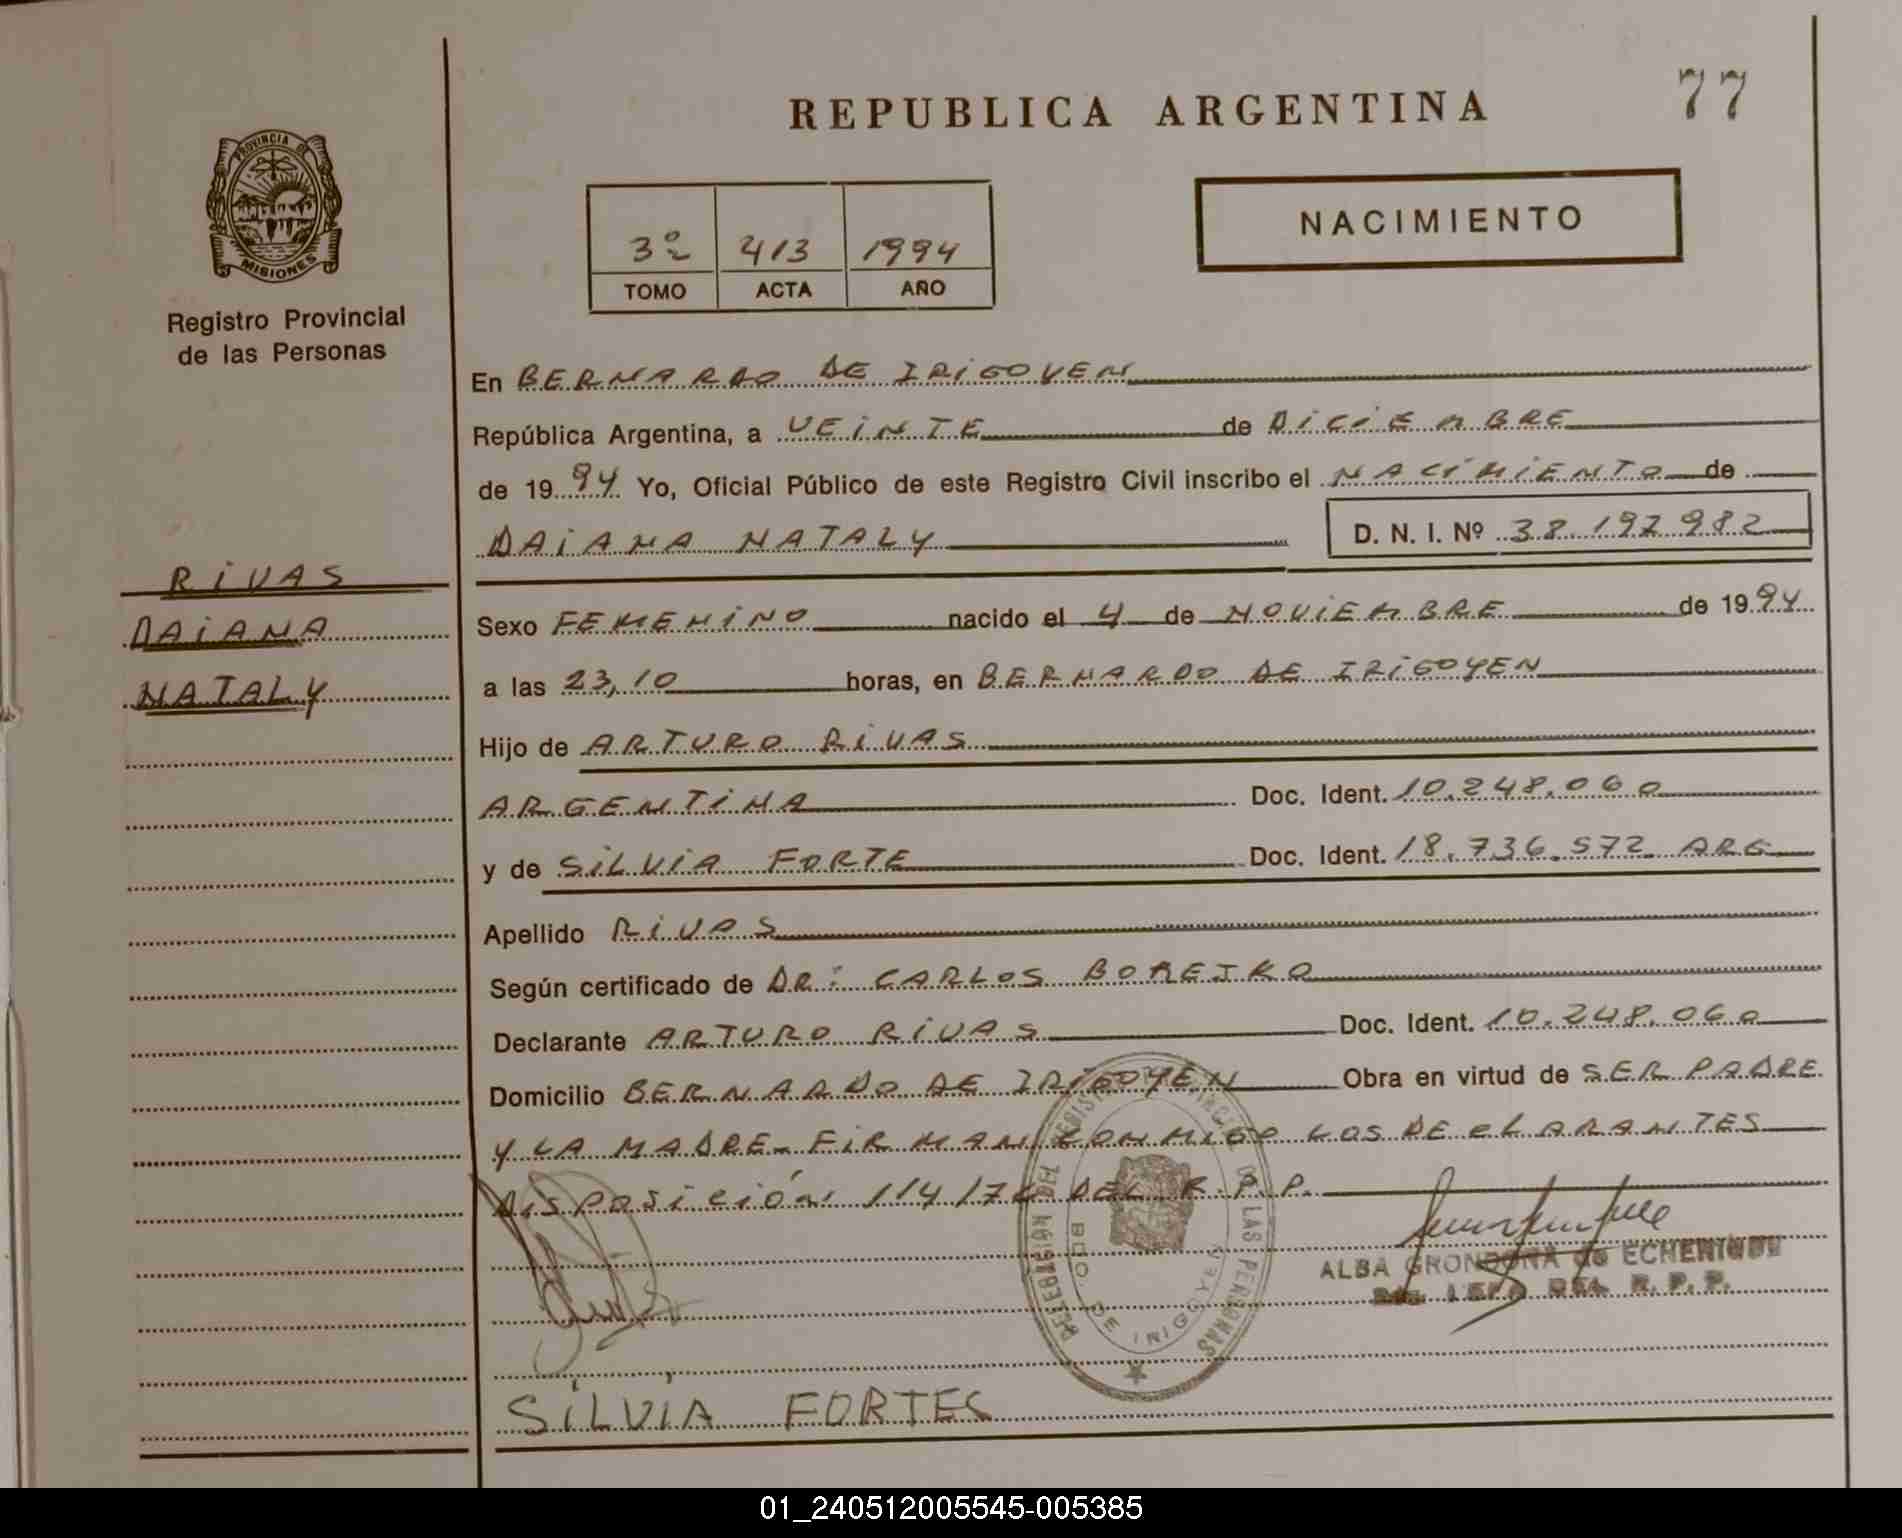 77
REPUBLICA ARGENTINA
PROVINCIA DE
MISIONES
Registro Provincial
de las Personas
NACIMIENTO
3º 413 1994
TOMO ACTA AÑO
En BERNARDO DE IRIGOYEN
República Argentina, a VEINTE de DICIEMBRE
de 1994 Yo, Oficial Público de este Registro Civil inscribo el NACIMIENTO de
DAIANA NATALY D. N. I. Nº 38.197.982
RIVAS
DAIANA
NATALY
Sexo FEMENINO nacido el 4 de NOVIEMBRE de 1994
a las 23,10 horas, en BERNARDO DE IRIGOYEN
Hijo de ARTURO RIVAS
ARGENTINA Doc. Ident. 10.248.060
y de SILVIA FORTE Doc. Ident. 18.736.572 ARG
Apellido RIVAS
Según certificado de DR: CARLOS BOREIKO
Declarante ARTURO RIVAS Doc. Ident. 10.248.060
Domicilio BERNARDO DE IRIGOYEN Obra en virtud de SER PADRE
Y LA MADRE- FIRMAN CONMIGO LOS DECLARANTES
DISPOSICIÓN 114/76 DEL R.P.P.
DEL REGISTRO PROVINCIAL DE LAS PERSONAS
BDO. DE IRIGOYEN
ALBA GRONDONA de ECHENIQUE
DEL R. P. P.
SILVIA FORTES
01_240512005545-005385